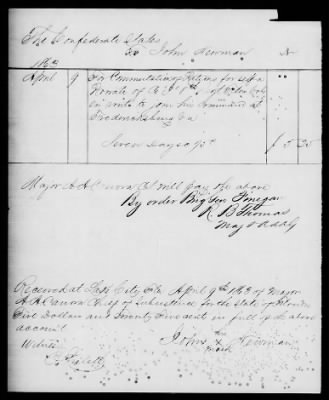 The Confederate States
To John Newman Dr
1863
April 9 For Commutation of Rations for self a
Private of Co 8th Regt Vols
en route to join his command at
Fredericksburg Va
Seven days @ 75¢ $ 5.25
Major A A Canova CS will pay the above
By order Brig Gen Finegan
R B Thomas
Maj & AA&IG
Received at Lake City Fla April 9th 1863 of Major
A A Canova Chief of Subsistence for the State of Florida
Five Dollars and Twenty Five cents in full of the above
account
Witness
John his x mark Newman